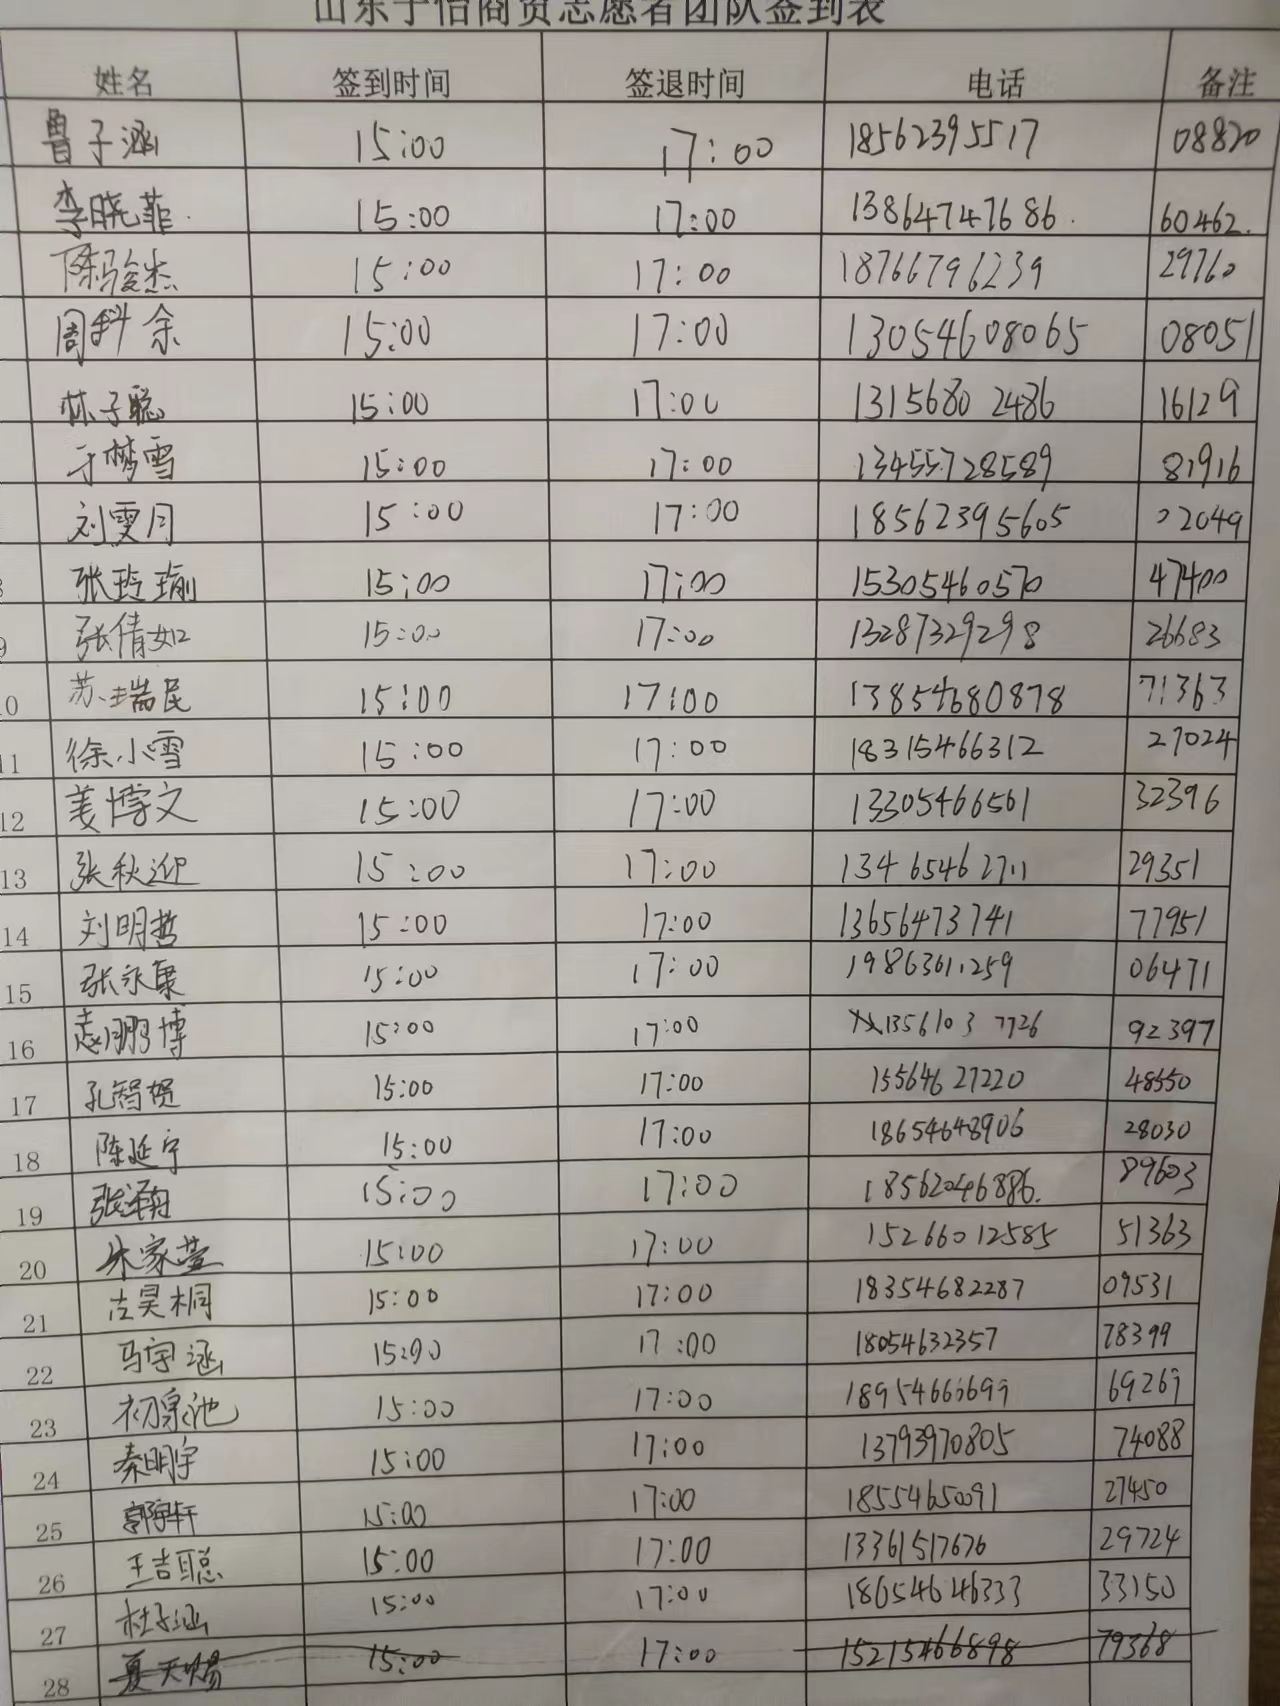 山东于怡商贸志愿者团队签到表
姓名 签到时间 签退时间 电话 备注
鲁子涵 15:00 17:00 18562395517 08820
李晓菲 15:00 17:00 13864747686 60462
陈骏杰 15:00 17:00 18766796239 29760
周科余 15:00 17:00 13054608065 08051
林子聪 15:00 17:00 13156802486 16129
于梦雪 15:00 17:00 13455728589 81916
刘雯月 15:00 17:00 18562395605 02049
张玲瑜 15:00 17:00 15305460570 47400
9 张倩如 15:00 17:00 13287329298 26683
10 苏瑞民 15:00 17:00 13854680878 71363
11 徐小雪 15:00 17:00 18315466312 27024
12 姜博文 15:00 17:00 13305466561 32396
13 张秋迎 15:00 17:00 13465462711 29351
14 刘明哲 15:00 17:00 13656473741 77951
15 张永康 15:00 17:00 19863611259 06471
16 赵鹏博 15:00 17:00 13561037726 92397
17 孔智贺 15:00 17:00 15564627220 48550
18 陈延宁 15:00 17:00 18654648906 28030
19 张 15:00 17:00 18562046886. 89603
20 朱家莹 15:00 17:00 15266012585 51363
21 古昊桐 15:00 17:00 18354682287 09531
22 马宇涵 15:00 17:00 18054632357 78399
23 初泉池 15:00 17:00 18954666699 69269
24 秦明宇 15:00 17:00 13793970805 74088
25 郭宇轩 15:00 17:00 18554650091 27450
26 王吉聪 15:00 17:00 13361517676 29724
27 杜子涵 15:00 17:00 18654646333 33150
28 夏天赐 15:00 17:00 15215466898 79368